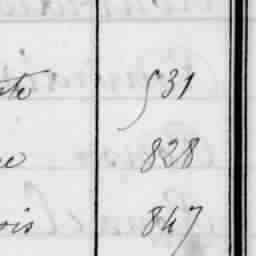 531
828
ois 847